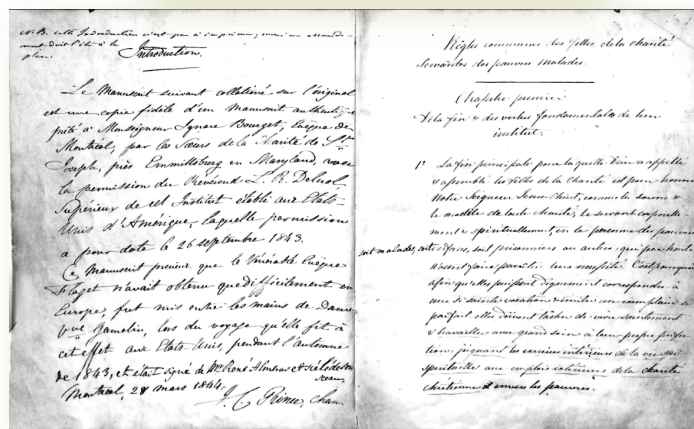 N.B. cette Introduction n'est pas à imprimer; mais un Mandement doit l'être à la
place.
Introduction.
Le Manuscrit suivant collationné sur l'original
est une copie fidèle d'un Manuscrit authentique
prêté à Monseigneur Ignace Bourget, Evêque de
Montréal, par les Sœurs de la Charité de St
Joseph, près Emmittsburg en Maryland, avec
la permission du Révérend L. R. Deluol,
Supérieur de cet Institut établi aux Etats-
Unis d'Amérique, laquelle permission
a pour date le 26 septembre 1843.
Ce Manuscrit précieux que le Vénérable Evêque
Flaget n'avait obtenu que difficilement en
Europe, fut mis entre les mains de Dame
Vve Gamelin, lors du voyage qu'elle fit à
cet effet aux Etats Unis, pendant l'automne
de 1843, et était signé de Mr René Alméras et scellé de son
sceau.
Montréal, 28 mars 1844.
J. C. Prince, Chan.
Règles communes des filles de la charité
Servantes des pauvres malades.
Chapitre premier
De la fin & des vertus fondamentales de leur
institut.
1° La fin principale pour laquelle Dieu a appellé
& assemblé les filles de la Charité est pour honorer
Notre Seigneur Jesus-Christ, comme la source &
le modèle de toute charité, le servant corporelle
ment & spirituellement, en la personne des pauvres
soit malades, soit enfans, soit prisonniers ou autres qui par honte
n'osent faire paraître leur necessité. C'est pourquoi
afin qu'elles puissent dignement correspondre à
une si sainte vocation & imiter un exemplaire si
parfait elles doivent tâcher de vivre saintement
& travailler avec grand soin à leur propre perfec
tion, joignant les exercices intérieurs de la vie spi
rituelle aux emplois extérieurs de la charité
chrétienne envers les pauvres.